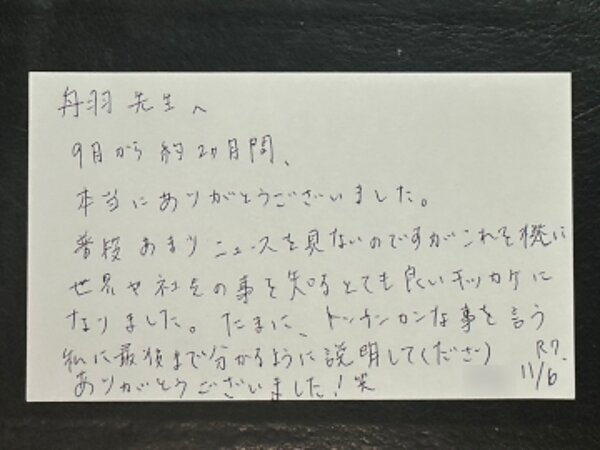 丹羽先生へ
9月から約2ヶ月間、
本当にありがとうございました。
普段あまりニュースを見ないのですがこれを機に
世界や社会の事を知るとても良いキッカケに
なりました。たまに、トンチンカンな事を言う
私に最後まで分かるように説明してくださり
ありがとうございました!笑
R7.
11/6